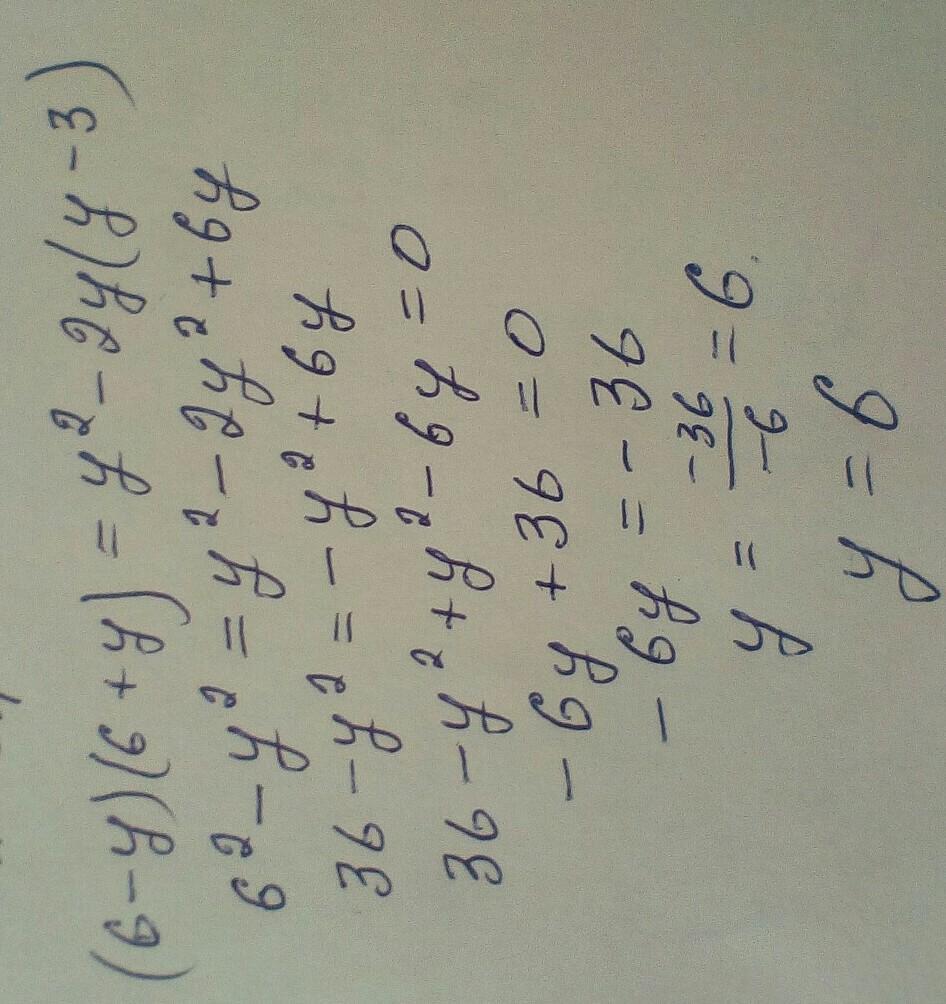 (6-y)(6+y)=y²-2y(y-3)
6²-y²=y²-2y²+6y
36-y²=-y²+6y
36-y²+y²-6y=0
-6y+36=0
-6y=-36
y=-36/-6=6.
y=6